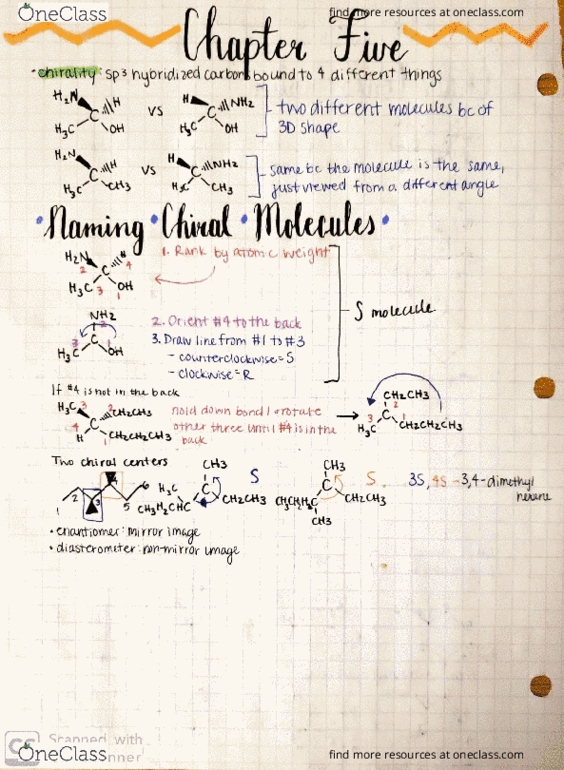 OneClass
find more resources at oneclass.com
Chapter Five
• chirality: sp3 hybridized carbon bound to 4 different things
H2N H C H3C OH vs H NH2 C H3C OH two different molecules bc of
3D shape
H2N H C H3C CH3 vs H NH2 C H3C CH3 same bc the molecule is the same,
just viewed from a different angle
• Naming • Chiral • Molecules •
H2N 2 C 4 H3C 3 OH 1 1. Rank by atomic weight
S molecule
NH2 2 3 C 1 H3C OH 2. Orient #4 to the back
3. Draw line from #1 to #3
- counterclockwise = S
- clockwise = R
If #4 is not in the back
H3C 3 2 CH2CH3 C 4 H 1 CH2CH2CH3 hold down bond 1 & rotate
other three until #4 is in the
back
→ CH2CH3 2 3 C 1 H3C CH2CH2CH3
Two chiral centers
1 2 3 4 5 6
CH3 H3C C CH2CH3 CH3H2CHC S
CH3 C CH2CH3 CH3 S
3S, 4S - 3,4-dimethyl
hexane
• enantiomer: mirror image
• diasterometer: non-mirror image
CS
Scanned with
OneClass
nner
find more resources at oneclass.com